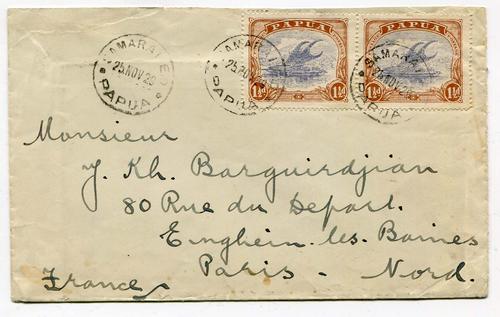 PAPUA PAPUA
1½d 1½d 1½d 1½d
SAMARAI
25 NOV 29
PAPUA
SAMARAI
25 NOV 29
PAPUA
SAMARAI
25 NOV 29
PAPUA
Monsieur
J. Kh. Barguirdjian
80 Rue du Depart.
Enghein les Baines
Paris - Nord.
France